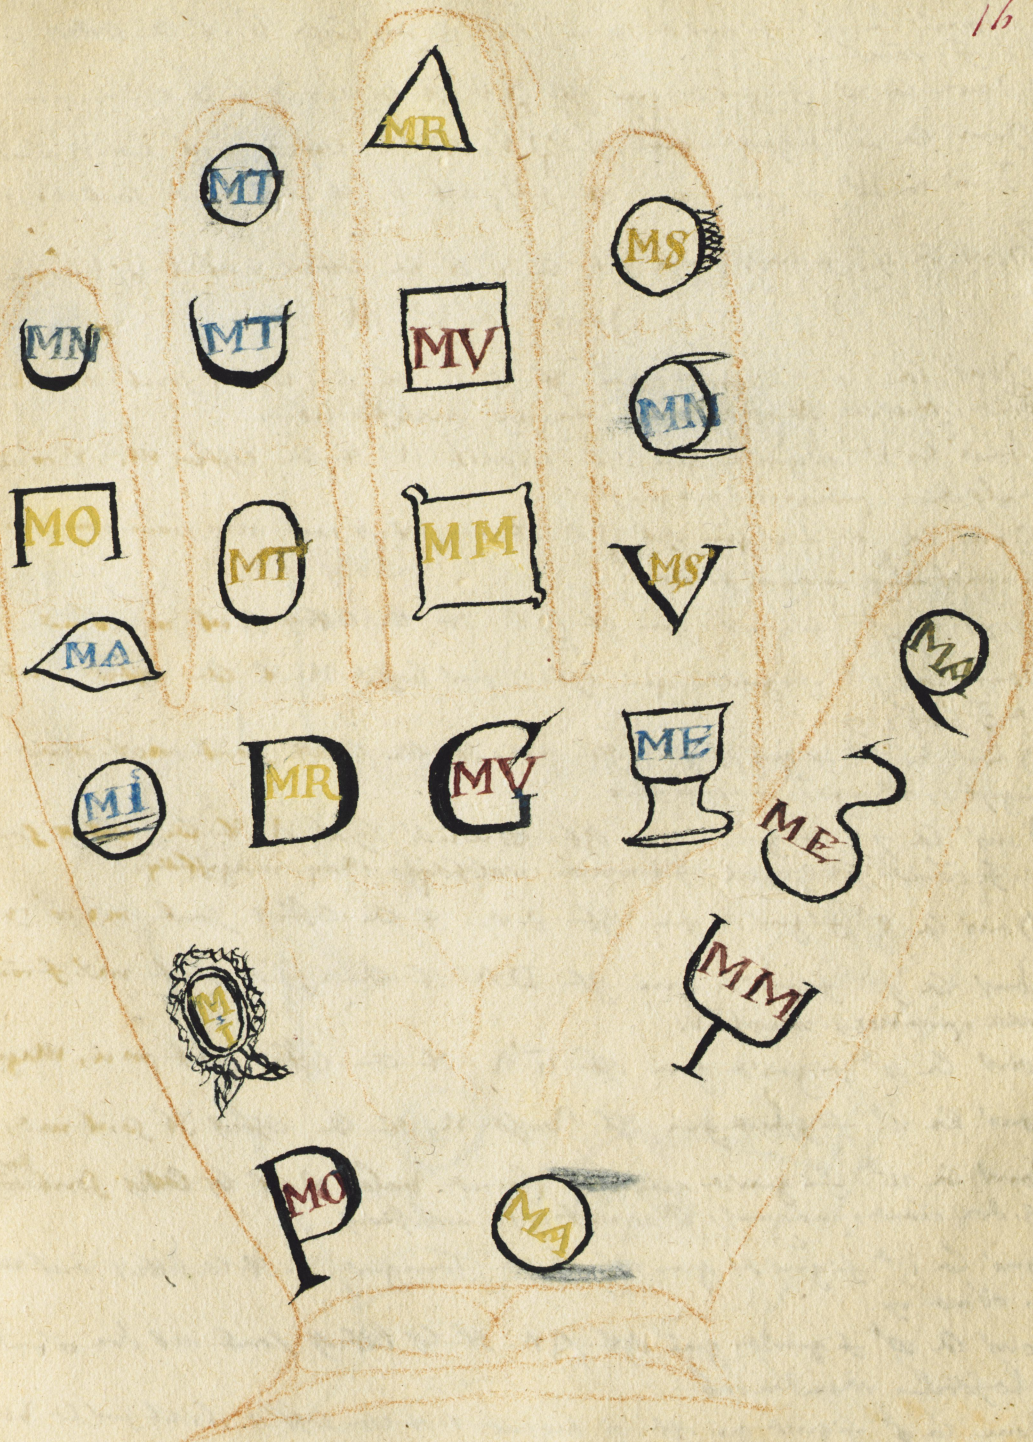 16
MR
MT
MS
MN
MT
MV
MN
MO
MT
MM
MS
MA
MA
MI
D
MR
G
MV
ME
ME
MM
MI
P
MO
MA